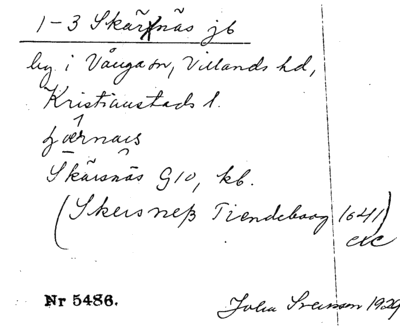 1-3 Skärnäs jb
by i Vånga sn, Villands hd,
Kristianstads l.
Skärsnäs G10, kb.
(Skersneß Tiendebog 1641)
etc
Nr 5486.
John Svensson 1929